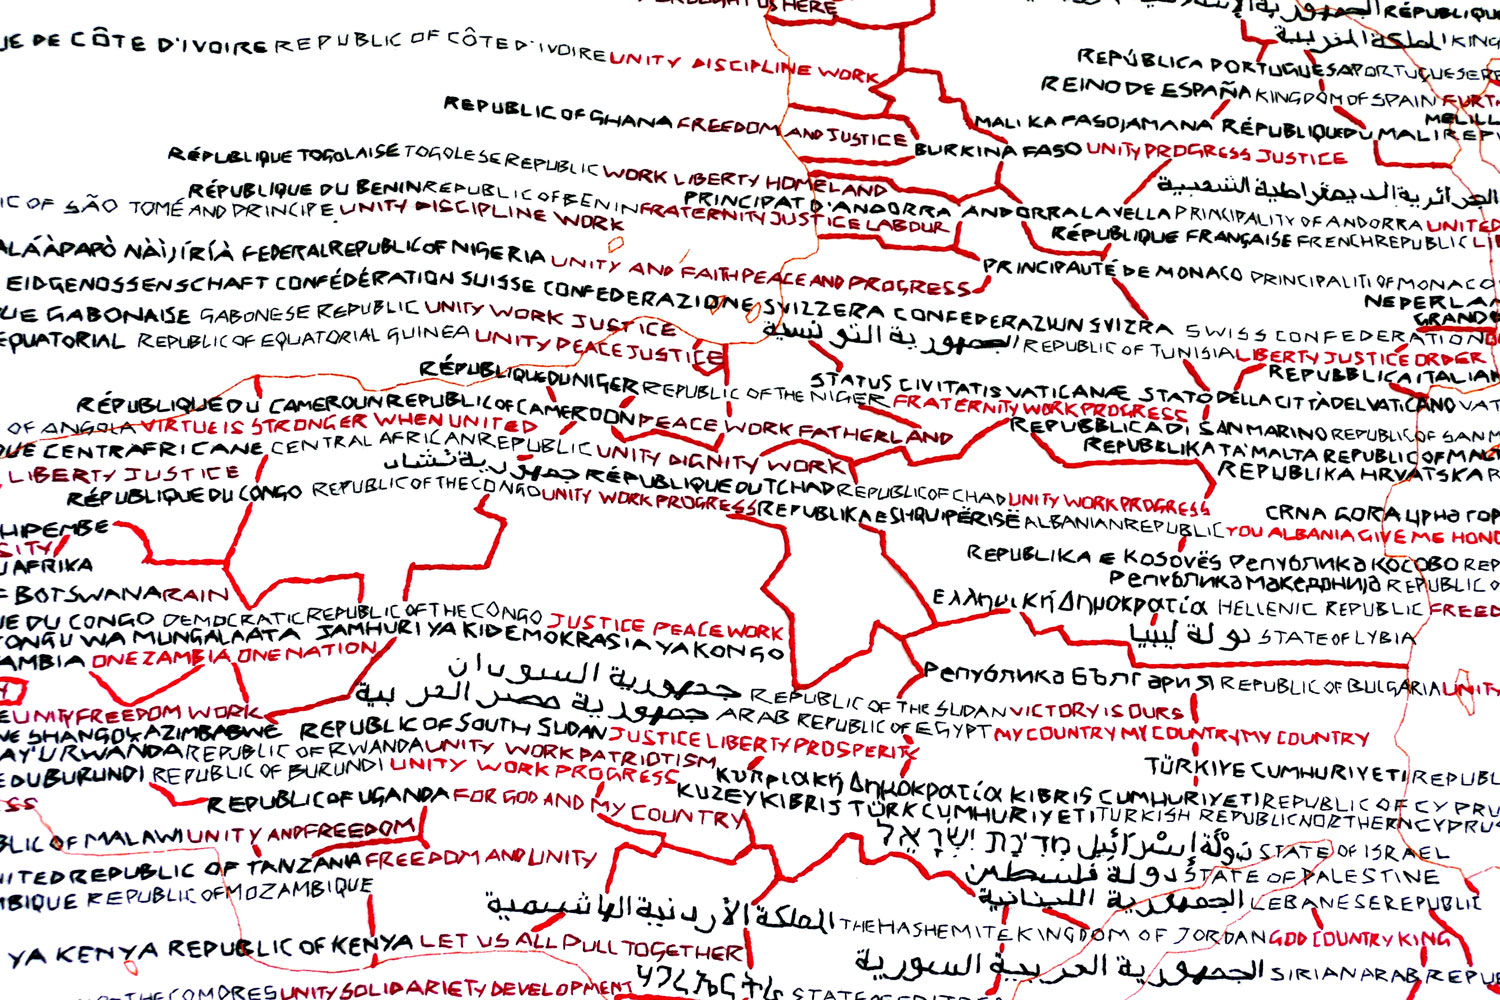 HERE
RÉPUBLIQUE
UE DE CÔTE D'IVOIRE REPUBLIC OF CÔTE D'IVOIRE UNITY DISCIPLINE WORK
المملكة المغربية KING
REPÚBLICA PORTUGUESA PORTUGUESE RE
REINO DE ESPAÑA KINGDOM OF SPAIN FURT
MELILL
REPUBLIC OF GHANA FREEDOM AND JUSTICE
MALI KA FASOJAMANA RÉPUBLIQUE DU MALI REP
BURKINA FASO UNITY PROGRESS JUSTICE
RÉPUBLIQUE TOGOLAISE TOGOLESE REPUBLIC WORK LIBERTY HOMELAND
الجزائرية الديمقراطية الشعبية
RÉPUBLIQUE DU BENIN REPUBLIC OF BENIN FRATERNITY JUSTICE LABOUR
PRINCIPAT D'ANDORRA ANDORRA LA VELLA PRINCIPALITY OF ANDORRA UNITED
IC OF SÃO TOMÉ AND PRINCIPE UNITY DISCIPLINE WORK
RÉPUBLIQUE FRANÇAISE FRENCH REPUBLIC LI
ALÁÀPAPÒ NÀÌJÍRÍÀ FEDERAL REPUBLIC OF NIGERIA UNITY AND FAITH PEACE AND PROGRESS
PRINCIPAUTÉ DE MONACO PRINCIPALITI OF MONACO
EIDGENOSSENSCHAFT CONFÉDÉRATION SUISSE CONFEDERAZIONE SVIZZERA CONFEDERAZIUN SVIZRA SWISS CONFEDERATION
NEDERLA
GRAND
UE GABONAISE GABONESE REPUBLIC UNITY WORK JUSTICE
الجمهورية التونسية REPUBLIC OF TUNISIA LIBERTY JUSTICE ORDER
EQUATORIAL REPUBLIC OF EQUATORIAL GUINEA UNITY PEACE JUSTICE
REPUBBLICA ITALIAN
RÉPUBLIQUE DU NIGER REPUBLIC OF THE NIGER FRATERNITY WORK PROGRESS
STATUS CIVITATIS VATICANÆ STATO DELLA CITTÀ DEL VATICANO VAT
RÉPUBLIQUE DU CAMEROUN REPUBLIC OF CAMEROON PEACE WORK FATHERLAND
REPUBBLICA DI SAN MARINO REPUBLIC OF SAN M
OF ANGOLA VIRTUE IS STRONGER WHEN UNITED
REPUBBLIKA TA' MALTA REPUBLIC OF MALT
UE CENTRAFRICAINE CENTRAL AFRICAN REPUBLIC UNITY DIGNITY WORK
REPUBLIKA HRVATSKA R
LIBERTY JUSTICE
جمهورية تشاد RÉPUBLIQUE DU TCHAD REPUBLIC OF CHAD UNITY WORK PROGRESS
RÉPUBLIQUE DU CONGO REPUBLIC OF THE CONGO UNITY WORK PROGRESS
CRNA GORA ЦРНА ГОР
REPUBLIKA E SHQUIPËRISË ALBANIAN REPUBLIC YOU ALBANIA GIVE ME HONO
HIPEMBE
SITY
REPUBLIKA E KOSOVËS Република КОСОВО REP
U AFRIKA
Република Македонија REPUBLIC O
F BOTSWANA RAIN
Ελληνική Δημοκρατία HELLENIC REPUBLIC FREED
UE DU CONGO DEMOCRATIC REPUBLIC OF THE CONGO JUSTICE PEACE WORK
دولة ليبيا STATE OF LYBIA
ONGU WA MUNGALAATA JAMHURI YA KIDEMOKRASIA YA KONGO
AMBIA ONE ZAMBIA ONE NATION
Република България REPUBLIC OF BULGARIA UNITY
جمهورية السودان REPUBLIC OF THE SUDAN VICTORY IS OURS
جمهورية مصر العربية ARAB REPUBLIC OF EGYPT MY COUNTRY MY COUNTRY MY COUNTRY
E UNITY FREEDOM WORK
REPUBLIC OF SOUTH SUDAN JUSTICE LIBERTY PROSPERITY
RWANDA REPUBLIC OF RWANDA UNITY WORK PATRIOTISM
TÜRKIYE CUMHURIYETI REPUBL
E DU BURUNDI REPUBLIC OF BURUNDI UNITY WORK PROGRESS
Κυπριακή Δημοκρατία KIBRIS CUMHURIYETI REPUBLIC OF CYPRU
KUZEY KIBRIS TÜRK CUMHURIYETI TURKISH REPUBLIC NORTHERN CYPRUS
REPUBLIC OF UGANDA FOR GOD AND MY COUNTRY
BLIC OF MALAWI UNITY AND FREEDOM
דولة إسرائيل מדינת ישראל STATE OF ISRAEL
NITED REPUBLIC OF TANZANIA FREEDOM AND UNITY
دولة فلسطين STATE OF PALESTINE
MBIQUE REPUBLIC OF MOZAMBIQUE
الجمهورية اللبنانية LEBANESE REPUBLIC
المملكة الأردنية الهاشمية THE HASHEMITE KINGDOM OF JORDAN GOD COUNTRY KING
YA KENYA REPUBLIC OF KENYA LET US ALL PULL TOGETHER
الجمهورية العربية السورية SIRIAN ARAB REPU
THE COMORES UNITY SOLIDARIETY DEVELOPMENT
STATE OF ERITREA